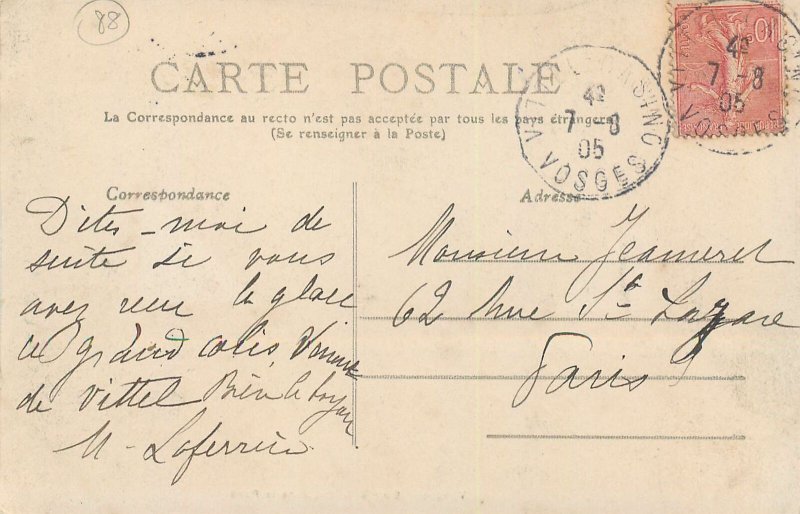 88
CARTE POSTALE
La Correspondance au recto n'est pas acceptée par tous les pays étrangers
(Se renseigner à la Poste)
VITTEL CASINO
4
7 - 8
05
VOSGES
10
4
7 - 8
05
VOSGES
Correspondance
Dites-moi de
suite si vous
avez reçu la glace
le grand colis
de Vittel Bien
M. Laferrière
Adresse
Monsieur Jeanneret
62 Rue St Lazare
Paris